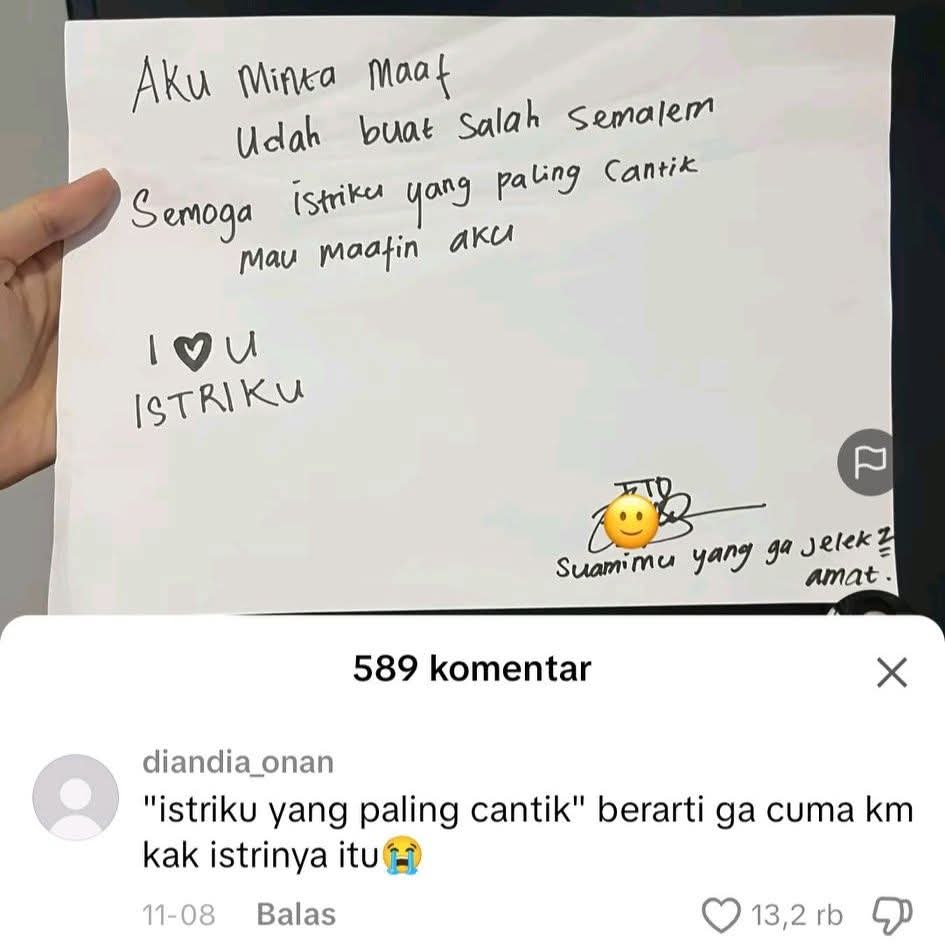 Aku Minta Maaf
Udah buat Salah Semalem
Semoga istriku yang paling Cantik
Mau maafin aku
I ♥ U
ISTRIKU
TTD
Suamimu yang ga Jelek2
amat.
589 komentar
diandia_onan
"istriku yang paling cantik" berarti ga cuma km
kak istrinya itu😭
11-08 Balas 13,2 rb